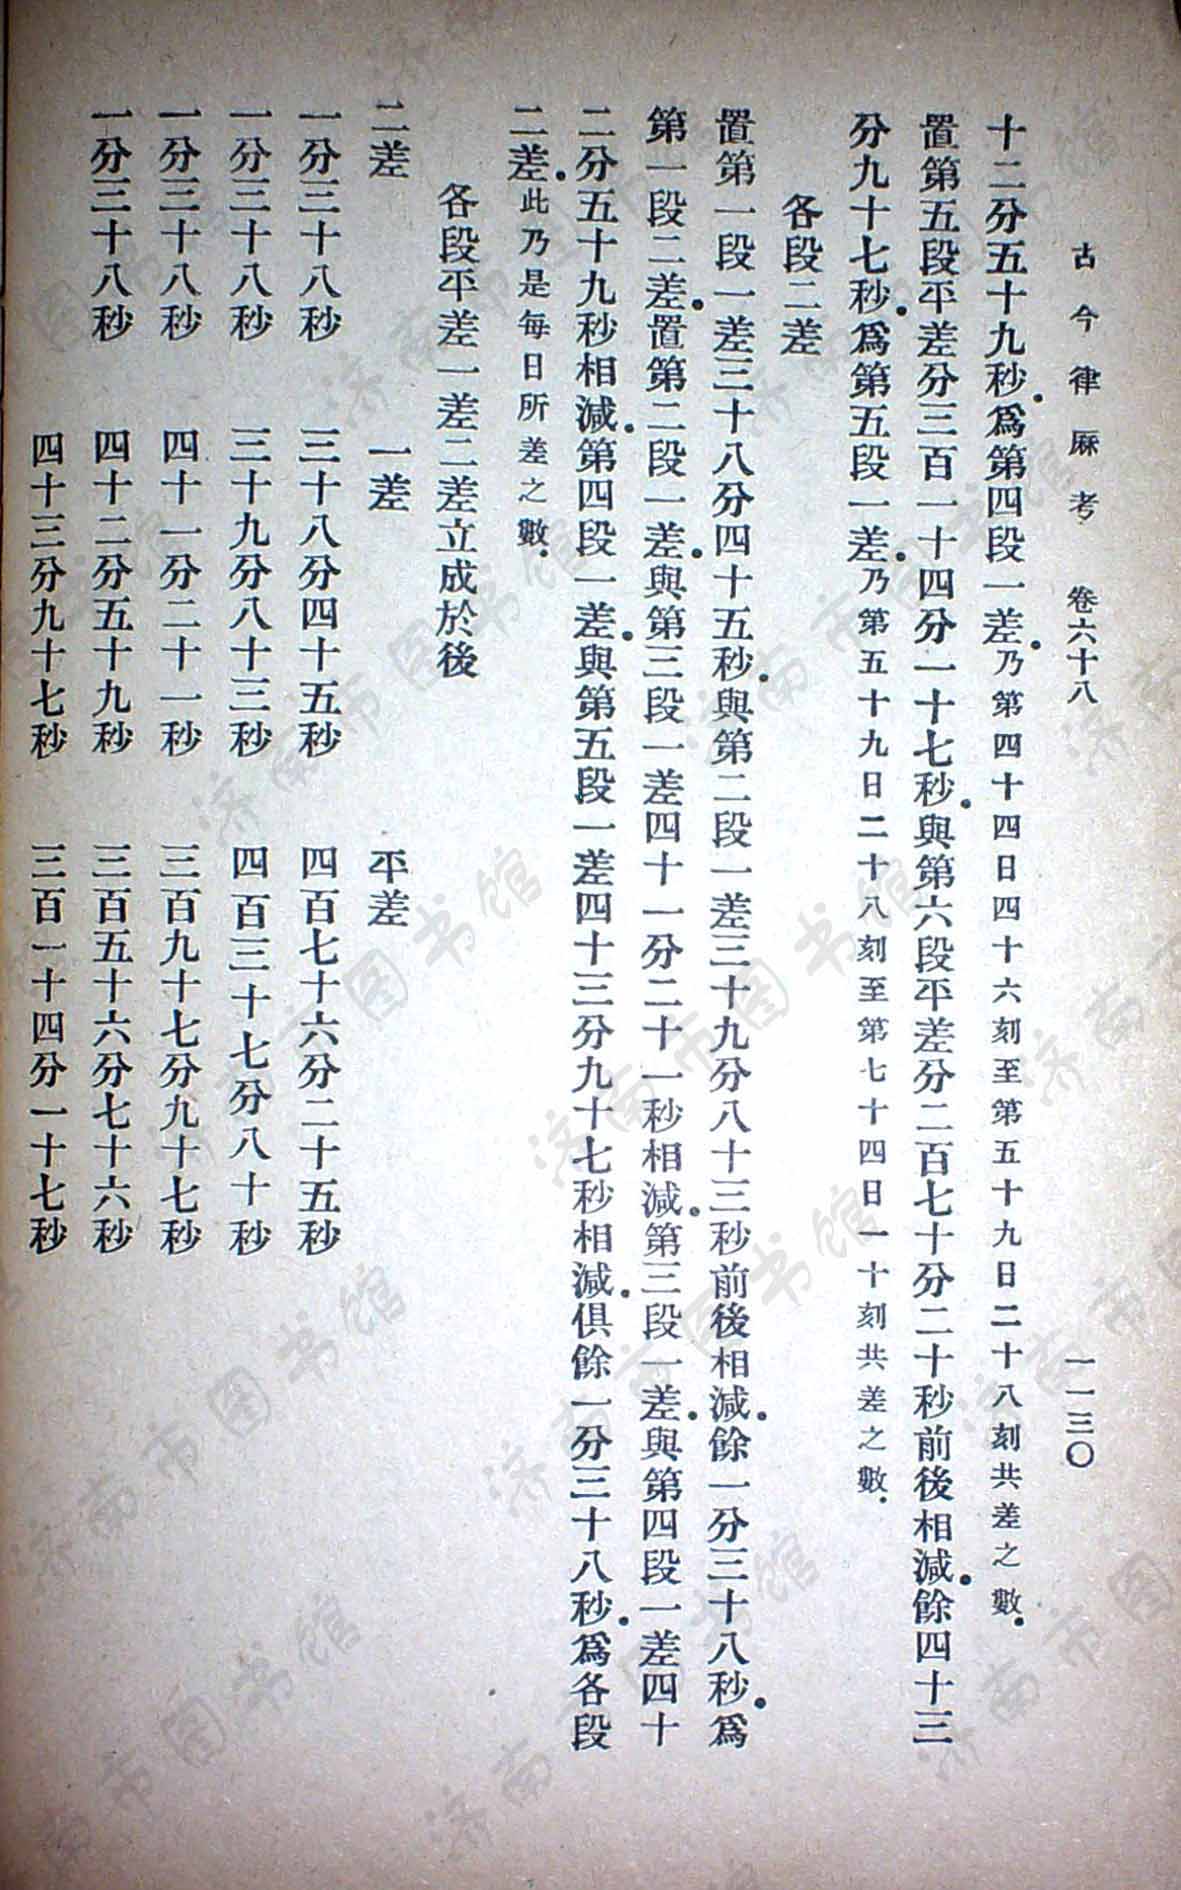 古今律厤考 卷六十八 一一三〇
十二分五十九秒。爲第四段一差。乃第四十四日四十六刻至第五十九日二十八刻共差之數。
置第五段平差分三百一十四分一十七秒。與第六段平差分二百七十分二十秒前後相減。餘四十三
分九十七秒。爲第五段一差。乃第五十九日二十八刻至第七十四日一十刻共差之數。
各段二差
置第一段一差三十八分四十五秒。與第二段一差三十九分八十三秒前後相減。餘一分三十八秒。爲
第一段二差。置第二段一差。與第三段一差四十一分二十一秒相減。第三段一差。與第四段一差四十
二分五十九秒相減。第四段一差。與第五段一差四十三分九十七秒相減。俱餘一分三十八秒。爲各段
二差。此乃是每日所差之數。
各段平差一差二差立成於後
二差 一差 平差
一分三十八秒 三十八分四十五秒 四百七十六分二十五秒
一分三十八秒 三十九分八十三秒 四百三十七分八十秒
一分三十八秒 四十一分二十一秒 三百九十七分九十七秒
一分三十八秒 四十二分五十九秒 三百五十六分七十六秒
四十三分九十七秒 三百一十四分一十七秒
济南市图书馆